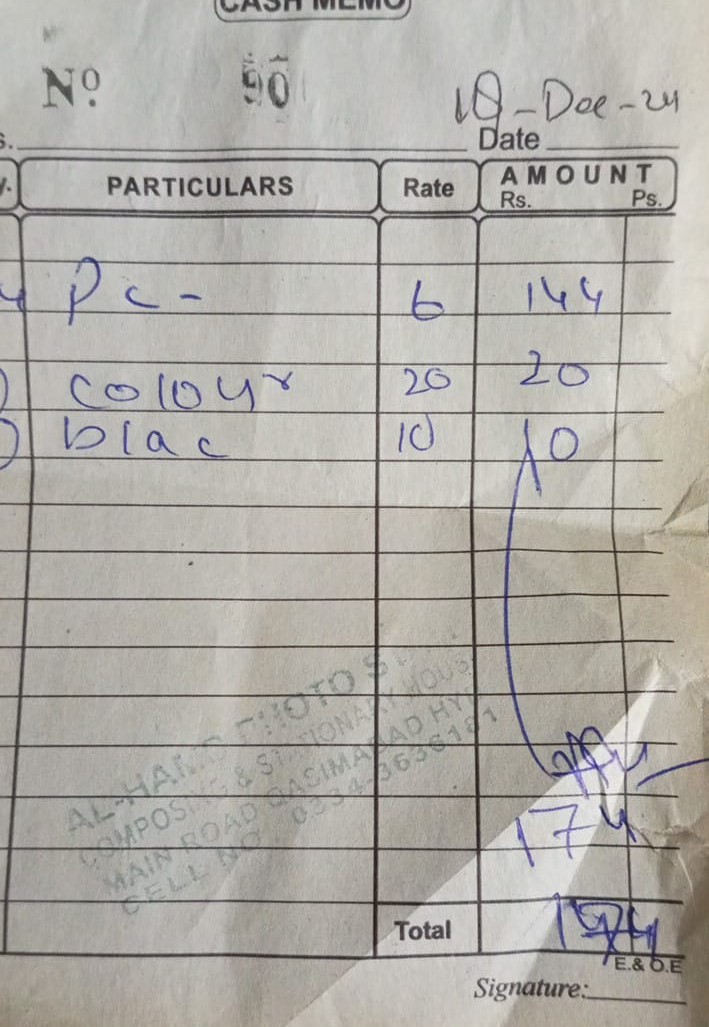 CASH MEMO
Nº 90
18-Dec-24
Date
PARTICULARS Rate AMOUNT
Rs. Ps.
4 Pc- 6 144
colour 20 20
blac 10 10
AL-HAMD PHOTO S
COMPOSING & STATIONARY HOUSE
MAIN ROAD QASIMABAD HYD
CELL NO. 0334-3636181
174
Total 174
E.& O.E
Signature: